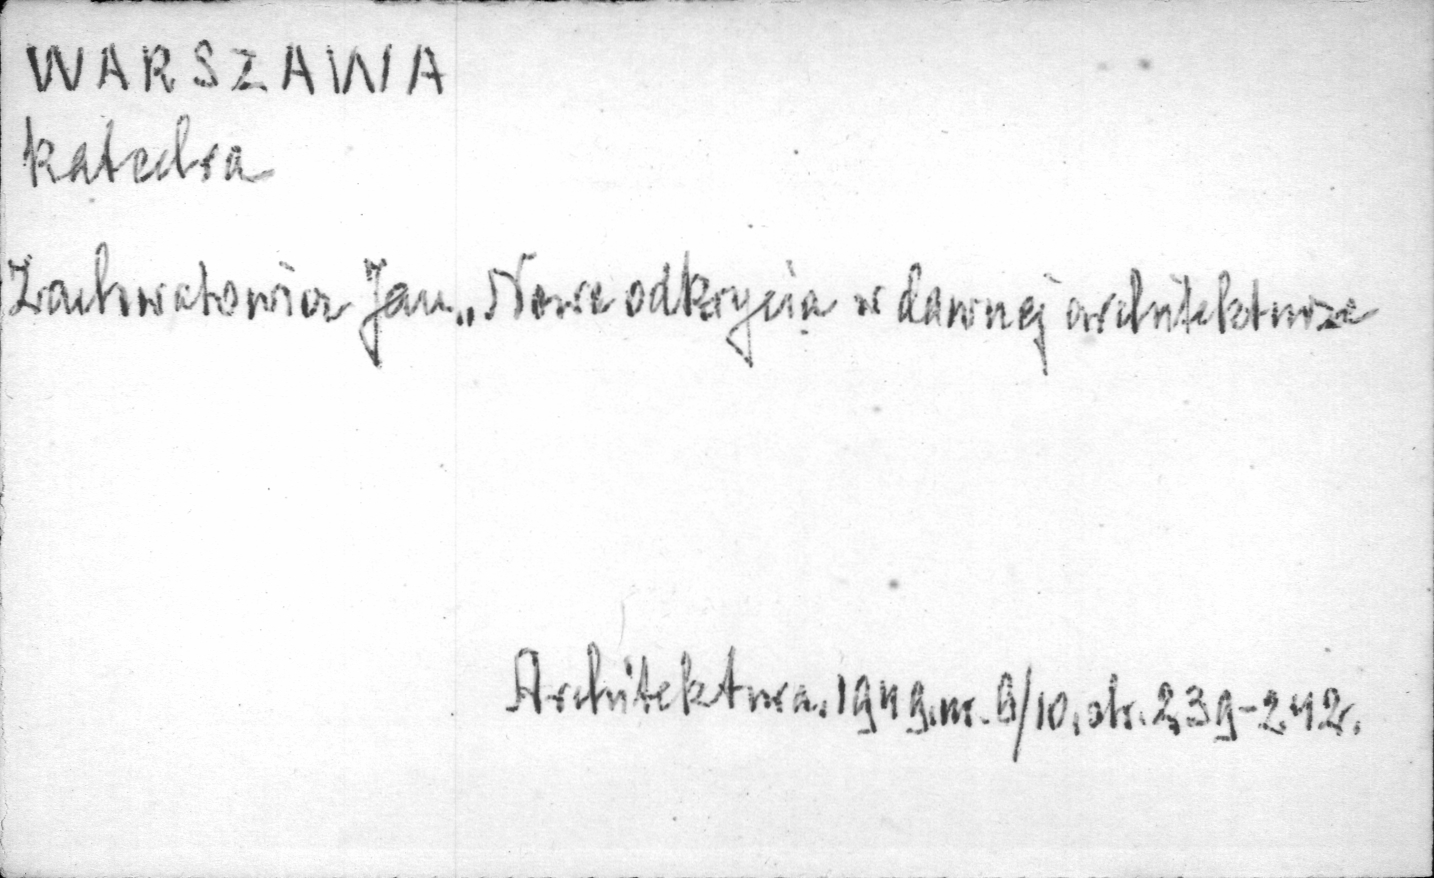 WARSZAWA
katedra
Zachwatowicz Jan „Nowe odkrycia w dawnej architekturze
Architektura. 1949. nr. 9/10, str. 239-242.